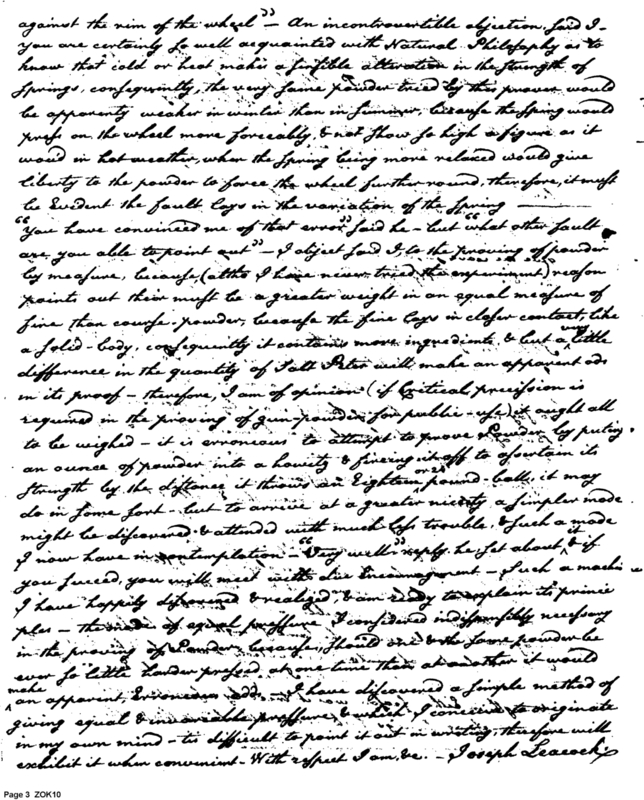 against the rim of the wheel" — An incontrovertible objection, said I —
you are certainly so well acquainted with Natural Philosophy as to
know that cold or heat makes a sensible alteration in the strength of
Springs, consequently, the very same powder tried by this prover would
be apparently weaker in winter than in summer, because the Spring would
press on the wheel more forceably, & not show so high a figure as it
woud in hot weather, when the Spring being more relaxed would give
liberty to the powder to force the wheel further round, therefore, it must
be Evident the fault lays in the variation of the Spring —
"You have convinced me of that error" said he — but "what other fault
are you able to point out" — I object said I, to the proving of powder
by measure, because, (altho I have never tried the experiment) reason
points out their must be a greater weight in an equal measure of
fine than course powder, because the fine lays in closer contact, like
a solid-body, consequently it contains more ingredients, & but a very little
difference in the quantity of Salt Peter will make an apparent ods
in its proof — therefore, I am of opinion (if Critical precission is
required in the proving of gun powder for public-use) it ought all
to be weighed — it is erroneous to attempt to prove Powder by puting
an ounce of powder into a howitz & fireing it off to assertain its
Strength by the distance it throws an Eighteen or 24 pound-ball, it may
do in some sort — but to arrive at a greater nicety a simpler mode
might be discovered & attended with much less trouble, & such a mode
I now have in contemplation — "Very well" reply'd he, set about it, & if
you succeed, you will meet with due Encouragement — Such a machine
I have happily discovered & realized, & am ready to explain its princi
ples — the mode of equal pressure I considered indispensibly necessary
in the proving of Powder, because, should one & the same powder be
ever so little harder pressed at one time than at another it would
make an apparent, Erroneous odds. — I have discovered a simple method of
giving equal & invariable pressure, & which I conceive to originate
in my own mind — tis difficult to point it out in writing, therefore will
exhibit it when convenient — With respect I am, &c. — Joseph Leacock
Page 3 ZOK10